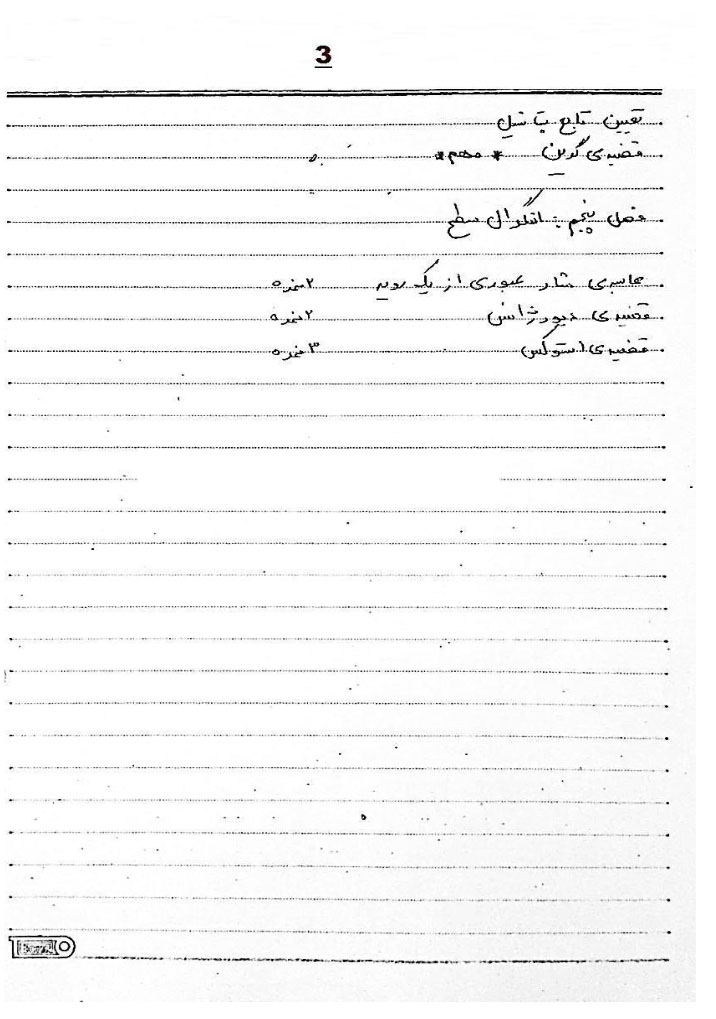 3
تعیین تابع پتانسیل
قضیه‌ی گرین * مهم *
فصل پنجم : انتگرال سطح
محاسبه‌ی شار عبوری از یک رویه ۲ نمره
قضیه‌ی دیورژانس ۲ نمره
قضیه‌ی استوکس ۳ نمره